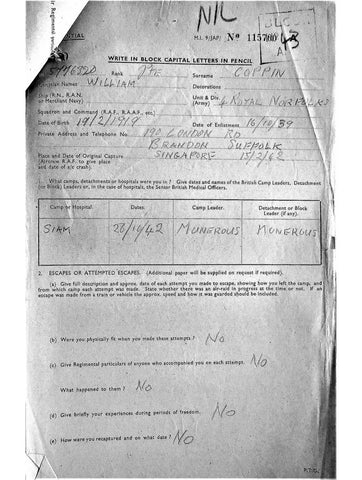 NIL
M.I. 9/JAP/ No 115700
WRITE IN BLOCK CAPITAL LETTERS IN PENCIL
Rank PTE Surname COPPIN
Names WILLIAM Decorations
Ship (R.N., R.A.N. or Merchant Navy) Unit & Div. (Army) 4 ROYAL NORFOLKS
Squadron and Command (R.A.F., R.A.A.F., etc.)
Date of Birth 19/2/1918 Date of Enlistment 16/10/39
Private Address and Telephone No. 190 LONDON RD
BRANDON SUFFOLK
Place and Date of Original Capture SINGAPORE 15/2/42
(Aircrew R.A.F. to give place and date of a/c crash).
1. What camps, detachments or hospitals were you in? Give dates and names of the British Camp Leaders, Detachment
(or Block) Leaders or, in the case of hospitals, the Senior British Medical Officers.
Camp or Hospital. Dates. Camp Leader. Detachment or Block Leader (if any).
SIAM 28/10/42 MUNEROUS MUNEROUS
2. ESCAPES OR ATTEMPTED ESCAPES. (Additional paper will be supplied on request if required).
(a) Give full description and approx. date of each attempt you made to escape, showing how you left the camp, and
from which camp each attempt was made. State whether there was an air-raid in progress at the time or not. If an
escape was made from a train or vehicle the approx. speed and how it was guarded should be included.
(b) Were you physically fit when you made these attempts? No
(c) Give Regimental particulars of anyone who accompanied you on each attempt. No
What happened to them? No
(d) Give briefly your experiences during periods of freedom. No
(e) How were you recaptured and on what date? No
P.T.O.